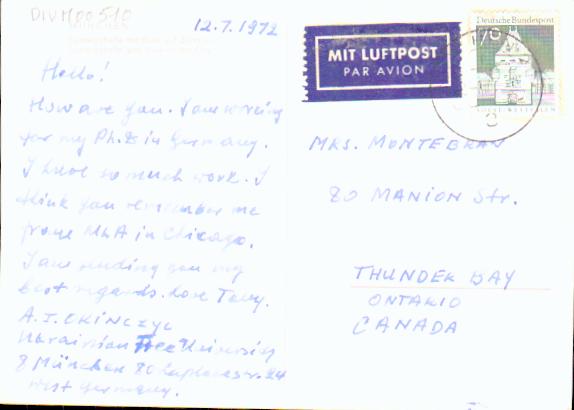 DIVM00510
12.7.1972
Hello!
How are you. I am working
for my Ph.D in Germany.
I have so much work. I
think you remember me
from MLA in Chicago.
I am sending you my
best regards. Love Tony.
A.I.
Ukrainian Free University
8 München 80 Laplacestr. 24
West Germany.
MIT LUFTPOST
PAR AVION
Deutsche Bundespost
70
MRS. MONTEBRAN
80 MANION Str.
THUNDER BAY
ONTARIO
CANADA